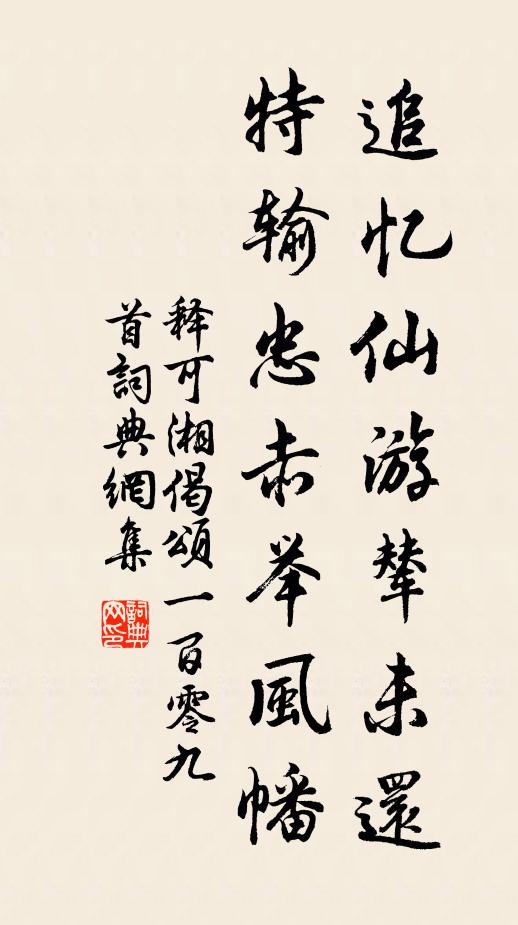 追忆仙游辇未還
特输忠赤举風幡
释可湘偈頌一百零九
首詞典網集
詞典网印